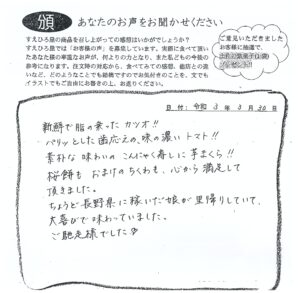 頒
あなたのお声をお聞かせください
すえひろ屋の商品を召し上がっての感想はいかがでしょうか?
すえひろ屋では「お客様の声」を募集しています。実際に食べて頂い
たあなた様の率直なお声が、何よりの力となり、また私どもの今後の
参考になります。注文時の対応から、食べてみての感想、他店との違
いなど、どのようなことでも結構ですのでお気付きのことを、文でも
イラストでもご自由にお書きの上、お送りください。
ご意見いただきました
お客様に抽選で、
日付:令和3年3月30日
新鮮で脂の乗ったカツオ!!
パリッとした歯応え、味の濃いトマト!!
素朴な味わいのこんにゃく寿しに手まくら!!
桜餅もおまけのちくわも、心から満足して
頂きました。
ちょうど長野県に稼いだ娘が里帰りしていて、
大喜びで味わっていました。
ご馳走様でした